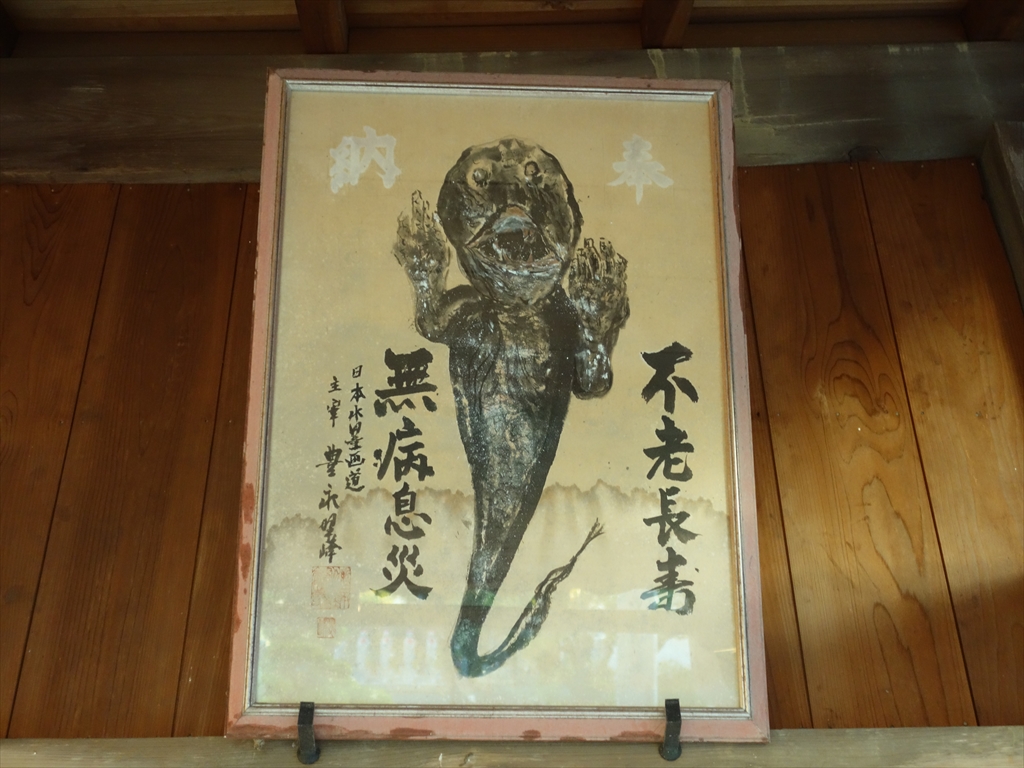 奉納
不老長寿
無病息災
日本水墨画道
主宰 豊永明峰